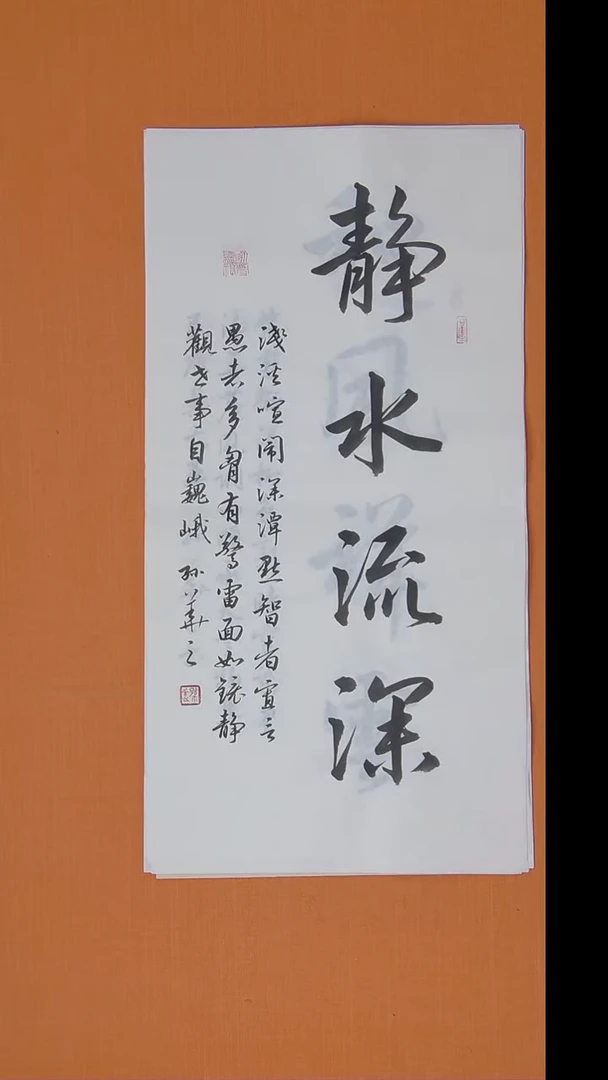 静水流深
淺溪喧闹深潭默智者寡言
愚者多胷有驚雷面如鏡静
觀世事自巍峨 孙華之